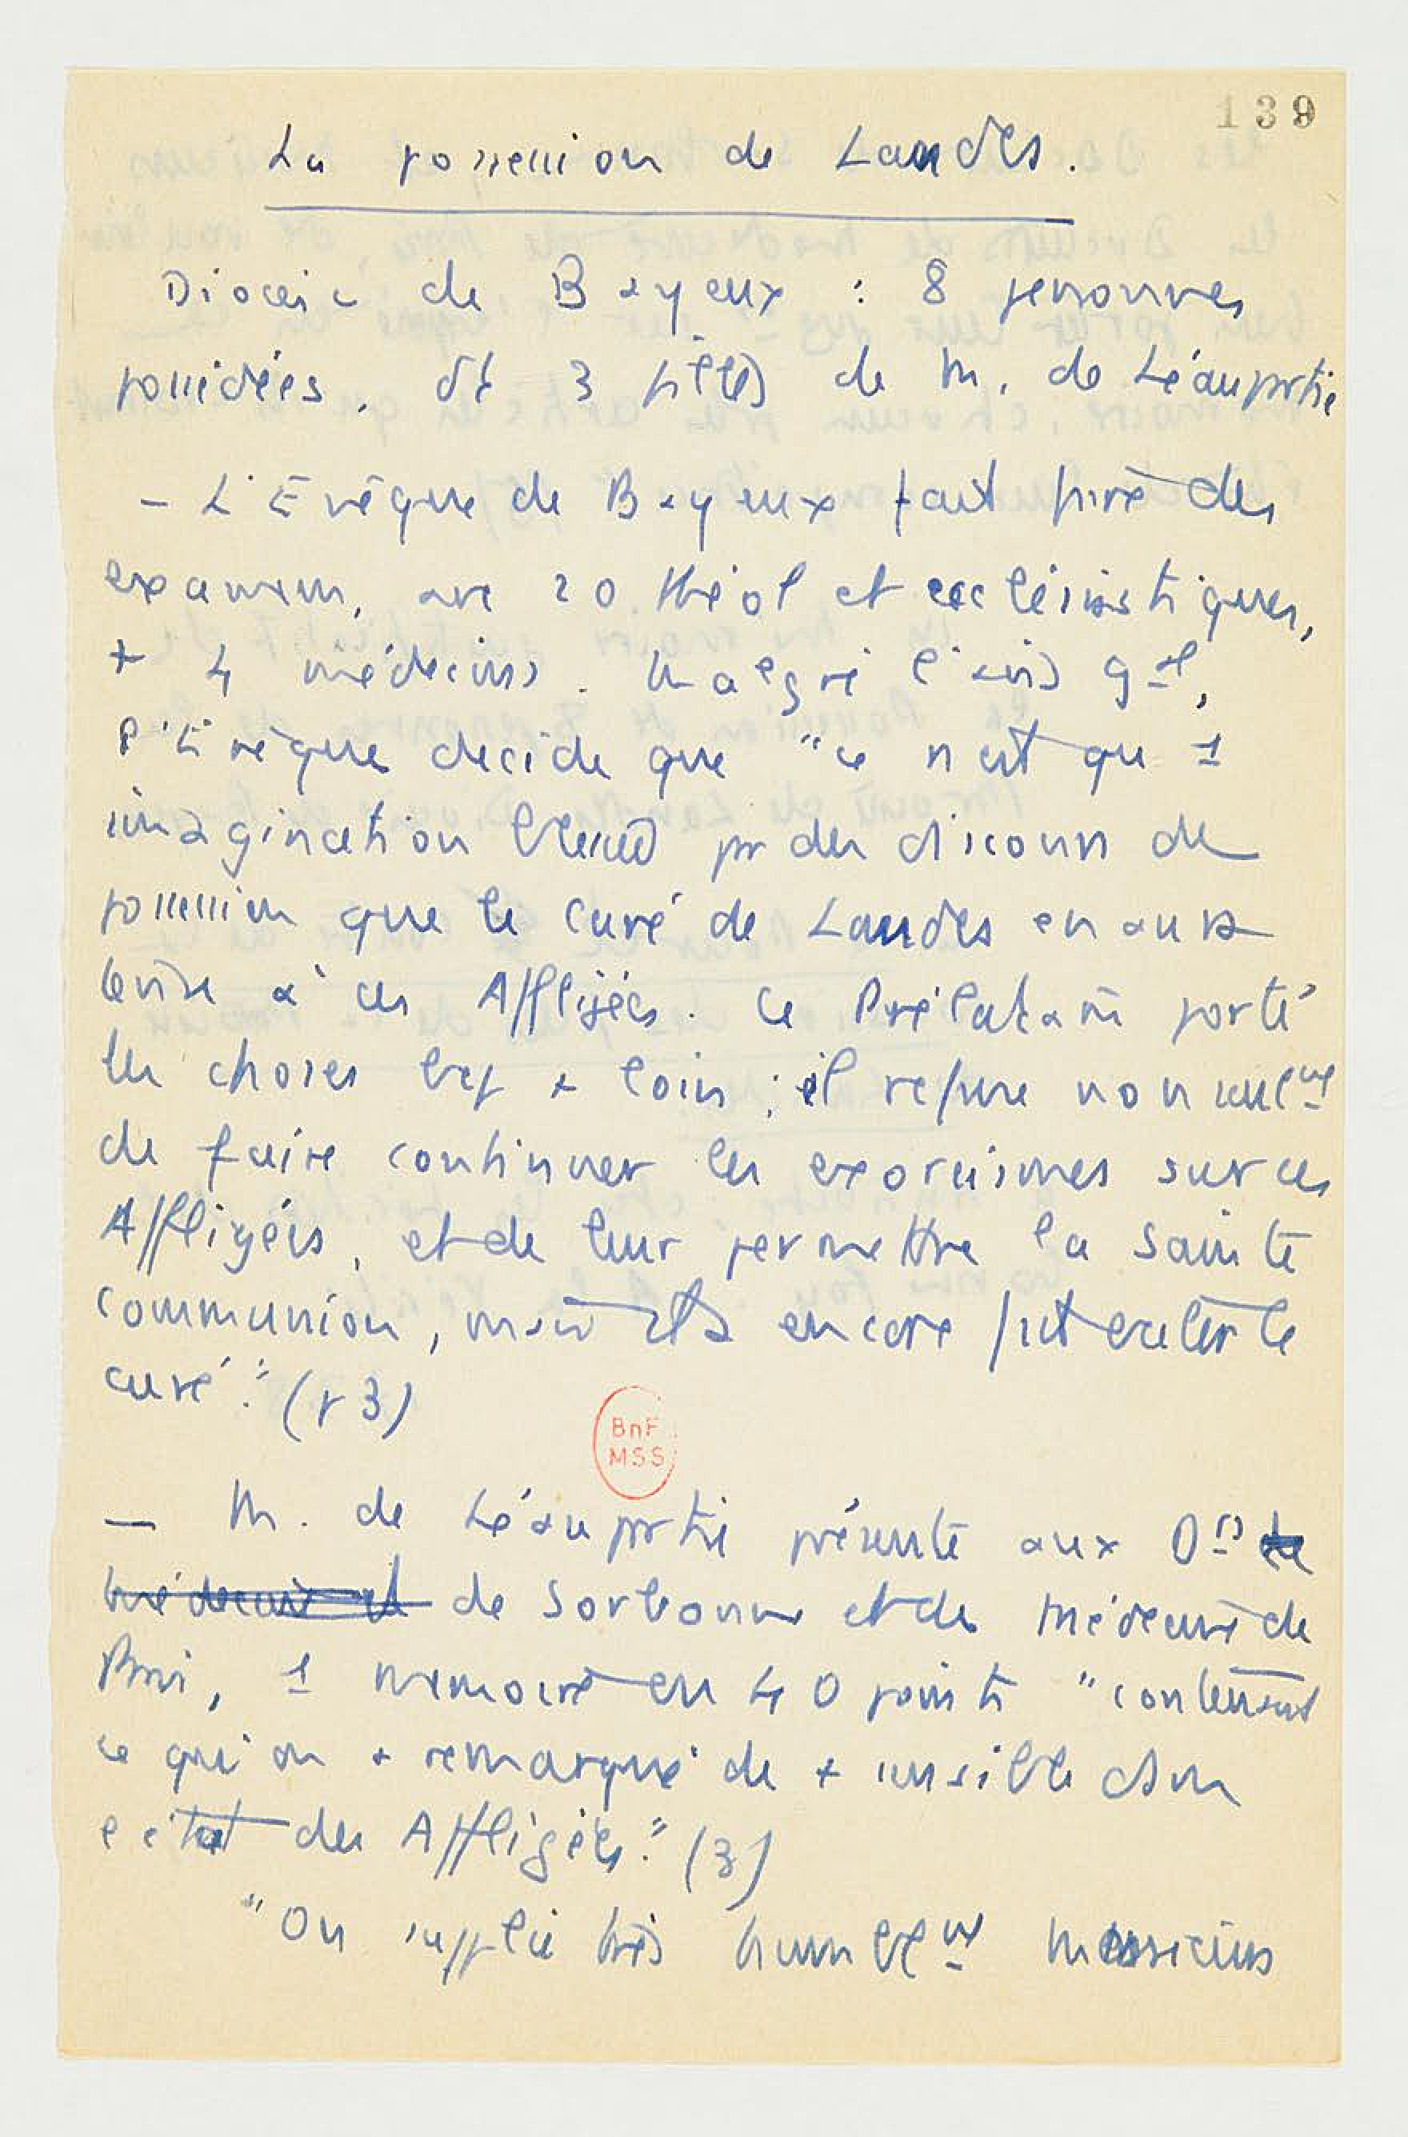 139
La possession de Landes.
Diocèse de Bayeux : 8 personnes
possédées, dt 3 filles de M. de Léaupartie
- L'Evêque de Bayeux fait faire des
examens, avec 20 théol et ecclésiastiques,
+ 4 médecins. Malgré l'avis gal,
l'Evêque décide que "ce n'est que 1
imagination blessée pr des discours de
possession que le curé de Landes en aurait
tenus à ces Affligées. Ce Prélat a mê porté
les choses bcp + loin ; il refuse non seulemt
de faire continuer les exorcismes sur ces
Affligées, et de leur permettre la sainte
communion, mais il a encore fait exiler le
curé." (p 3)
BnF
MSS
— M. de Léaupartie présente aux Drs de
médecine et de Sorbonne et de Médecine de
Paris, 1 mémoire en 40 points "contenant
ce qu'on a remarqué de + sensible dans
l'état des Affligées." (3)
"On supplie très humblemt Messieurs